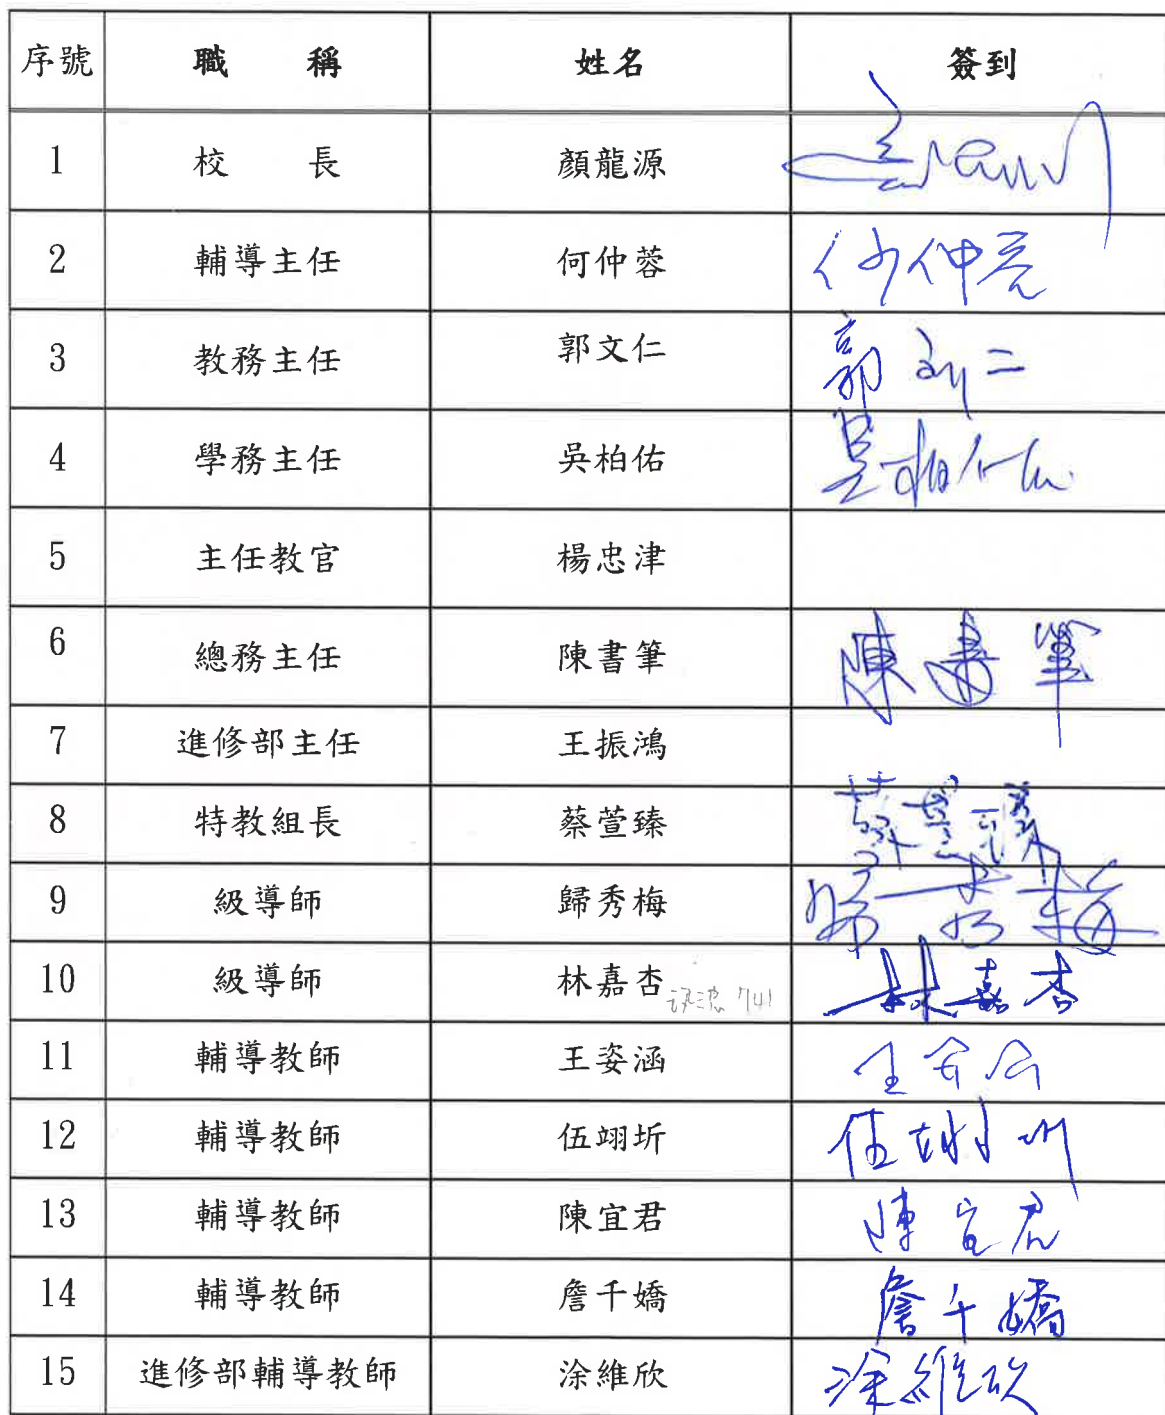 序號 職 稱 姓名 簽到
1 校 長 顏龍源
2 輔導主任 何仲蓉 何仲蓉
3 教務主任 郭文仁 郭文仁
4 學務主任 吳柏佑 吳柏佑
5 主任教官 楊忠津
6 總務主任 陳書筆 陳書筆
7 進修部主任 王振鴻
8 特教組長 蔡萱臻 蔡萱臻
9 級導師 歸秀梅 歸秀梅
10 級導師 林嘉杏 741 林嘉杏
11 輔導教師 王姿涵 王姿涵
12 輔導教師 伍翊圻 伍翊圻
13 輔導教師 陳宜君 陳宜君
14 輔導教師 詹千嬌 詹千嬌
15 進修部輔導教師 涂維欣 涂維欣